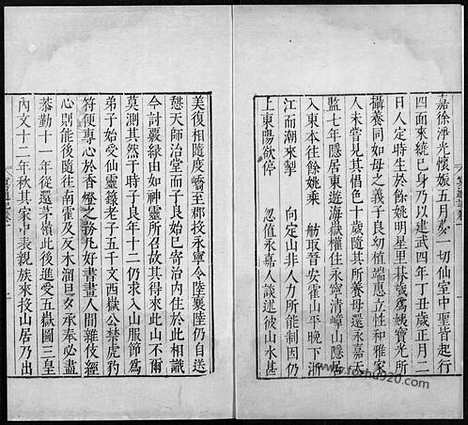 嘉徐淨光懷娠五月夢一切仙室中聖皆起行
四面來繞已身乃以建武四年丁丑歲正月二
日人定時生於餘姚明星里朞歲爲姨寶光所
攝養同如母之義子良幼植端惠立性和雅家
人未嘗見其慍色十歲隨其所養母還永嘉天
監七年隱居東遊海嶽權住永寧清嶂山隱居
入東本往餘姚乘 舫取晉安霍山平晚下浙
江而潮來掣 向定山非人力所能制因仍
上東陽欲停 仍值永嘉人談述彼山水甚
美復相隨度嶠至郡投永寧令陸襄陸仍自送
憇天師治堂而子良始巳寄治內住於此相識
今討巖緣由如神靈所召故其得來此山不爾
莫測其然于時子良年十二仍求入山服節爲
弟子始受仙靈籙老子五千文西嶽公禁虎豹
符便專心於香燈之務凡好書畫人間雜伎經
心則能後隨往南霍及反木溜旦夕承奉必盡
恭勤十一年從還茅嶺此後進受五嶽圖三皇
內文十二年秋其家中表親族來投山居乃出